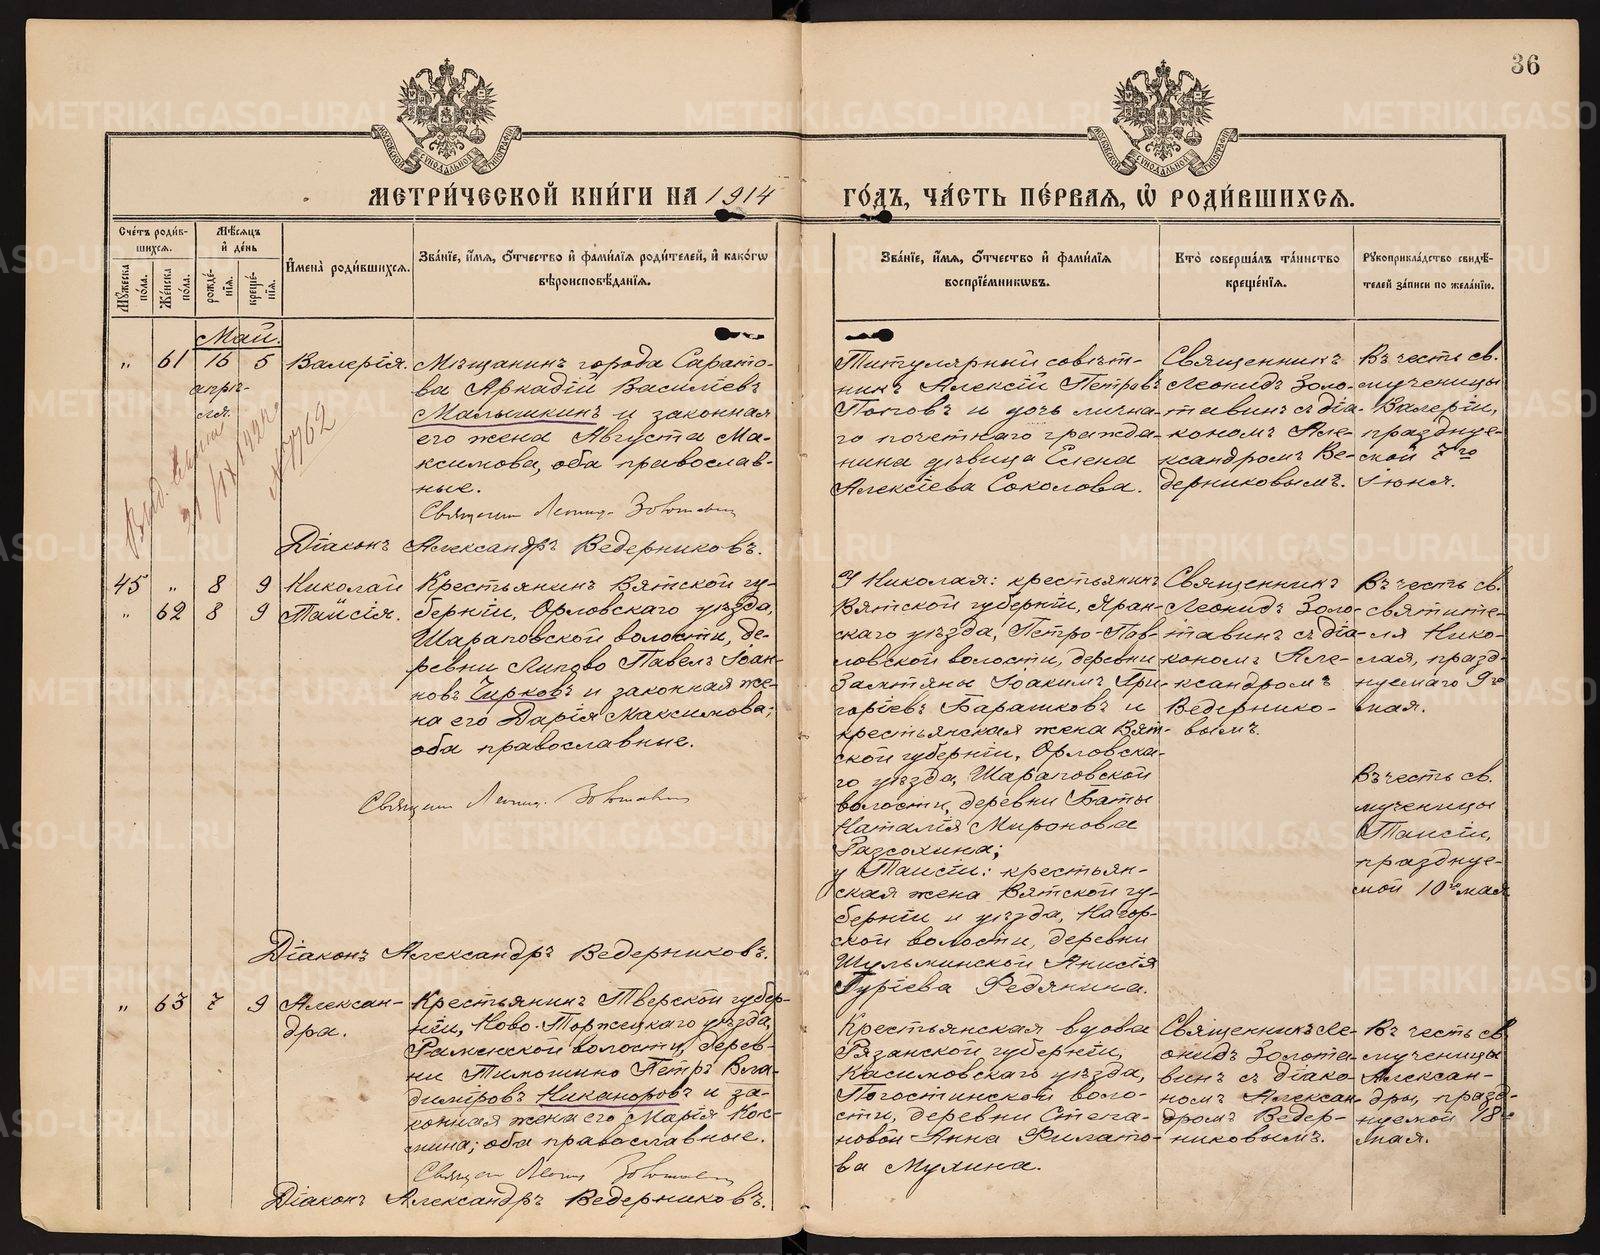 36
МЕТРИ́ЧЕСКОЙ КНИ́ГИ НА 1914 ГО́ДЪ, ЧА́СТЬ ПЕ́РВАЯ, Ѡ РОДИ́ВШИХСЯ.
Сче́тъ роди́в-
шихся.
Мꙋ́жеска
по́ла.
Же́нска
по́ла.
Мѣ́сяцъ
и де́нь
рожде́-
нїя.
креще́-
нїя.
Имена̀ роди́вшихся.
Зва́нїе, и́мя, ѻ́тчество и фами́лїя роди́телей, и како́гѡ
вѣроисповѣ́данїя.
Зва́нїе, и́мя, ѻ́тчество и фами́лїя
воспрїе́мникѡвъ.
Кто̀ соверша́лъ та́инство
креще́нїя.
Рꙋкоприкла́дство свидѣ́-
телей за́писи по жела́нїю.
Май.
" 61 16 5 Валерія.
апрѣ-
ля.
№ 7762
Мѣщанинъ города Сарато-
ва Аркадій Василіевъ
Малышкинъ и законная
его жена Августа Ма-
ксимова, оба православ-
ные.
Священ. Леонид. Золотавин
Діаконъ Александръ Ведерниковъ.
Титулярный совѣт-
никъ Алексій Петровъ
Поповъ и дочь лична-
го почетнаго гражда-
нина дѣвица Елена
Алексіева Соколова.
Священникъ
Леонидъ Золо-
тавинъ съ діа-
кономъ Але-
ксандромъ Ве-
дерниковымъ.
Въ честь св.
мученицы
Валеріи,
празднуе-
мой 7го
іюня.
45 " 8 9 Николай
" 62 8 9 Таисія.
Крестьянинъ Вятской гу-
берніи, Орловскаго уѣзда,
Шараповской волости, де-
ревни Липово Павелъ Іоан-
новъ Чирковъ и законная же-
на его Дарія Максимова;
оба православные.
Священ. Леонид. Золотавин
Діаконъ Александръ Ведерниковъ.
У Николая: крестьянинъ
Вятской губерніи, Яран-
скаго уѣзда, Петро-Пав-
ловской волости, деревни
Замтяны Іоакимъ Гри-
горіевъ Барашковъ и
крестьянская жена Вят-
ской губерніи, Орловска-
го уѣзда, Шараповской
волости, деревни Баты
Наталія Миронова
Разсохина;
у Таисіи: крестьян-
ская жена Вятской гу-
берніи и уѣзда, Нагор-
ской волости, деревни
Шульминской Анисія
Гуріева Редянина.
Священникъ
Леонидъ Золо-
тавинъ съ діа-
кономъ Але-
ксандромъ
Ведернико-
вымъ.
Въ честь св.
святите-
ля Нико-
лая, празд-
нуемаго 9го
мая.
Въ честь св.
мученицы
Таисіи,
празднуе-
мой 10го мая
" 63 7 9 Алексан-
дра.
Крестьянинъ Тверской губер-
ніи, Ново-Торжецкаго уѣзда,
Раменской волости, дерев-
ни Тимошино Петръ Вла-
диміровъ Никаноровъ и за-
конная жена его Марія Кос-
мина; оба православные.
Священ. Леонид Золотавин
Діаконъ Александръ Ведерниковъ.
Крестьянская вдова
Рязанской губерніи,
Касимовскаго уѣзда,
Погостинской воло-
сти, деревни Степа-
новой Анна Филато-
ва Мухина.
Священникъ Ле-
онидъ Золота-
винъ съ діако-
номъ Алексан-
дромъ Ведер-
никовымъ.
Въ честь св.
мученицы
Алексан-
дры, празд-
нуемой 18го
мая.